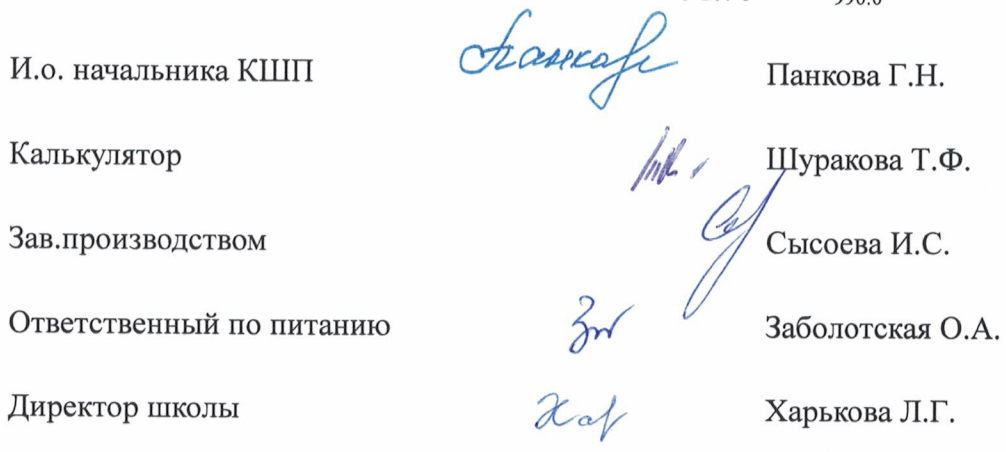 И.о. начальника КШП Панкова Г.Н.
Калькулятор Шуракова Т.Ф.
Зав.производством Сысоева И.С.
Ответственный по питанию Заболотская О.А.
Директор школы Харькова Л.Г.